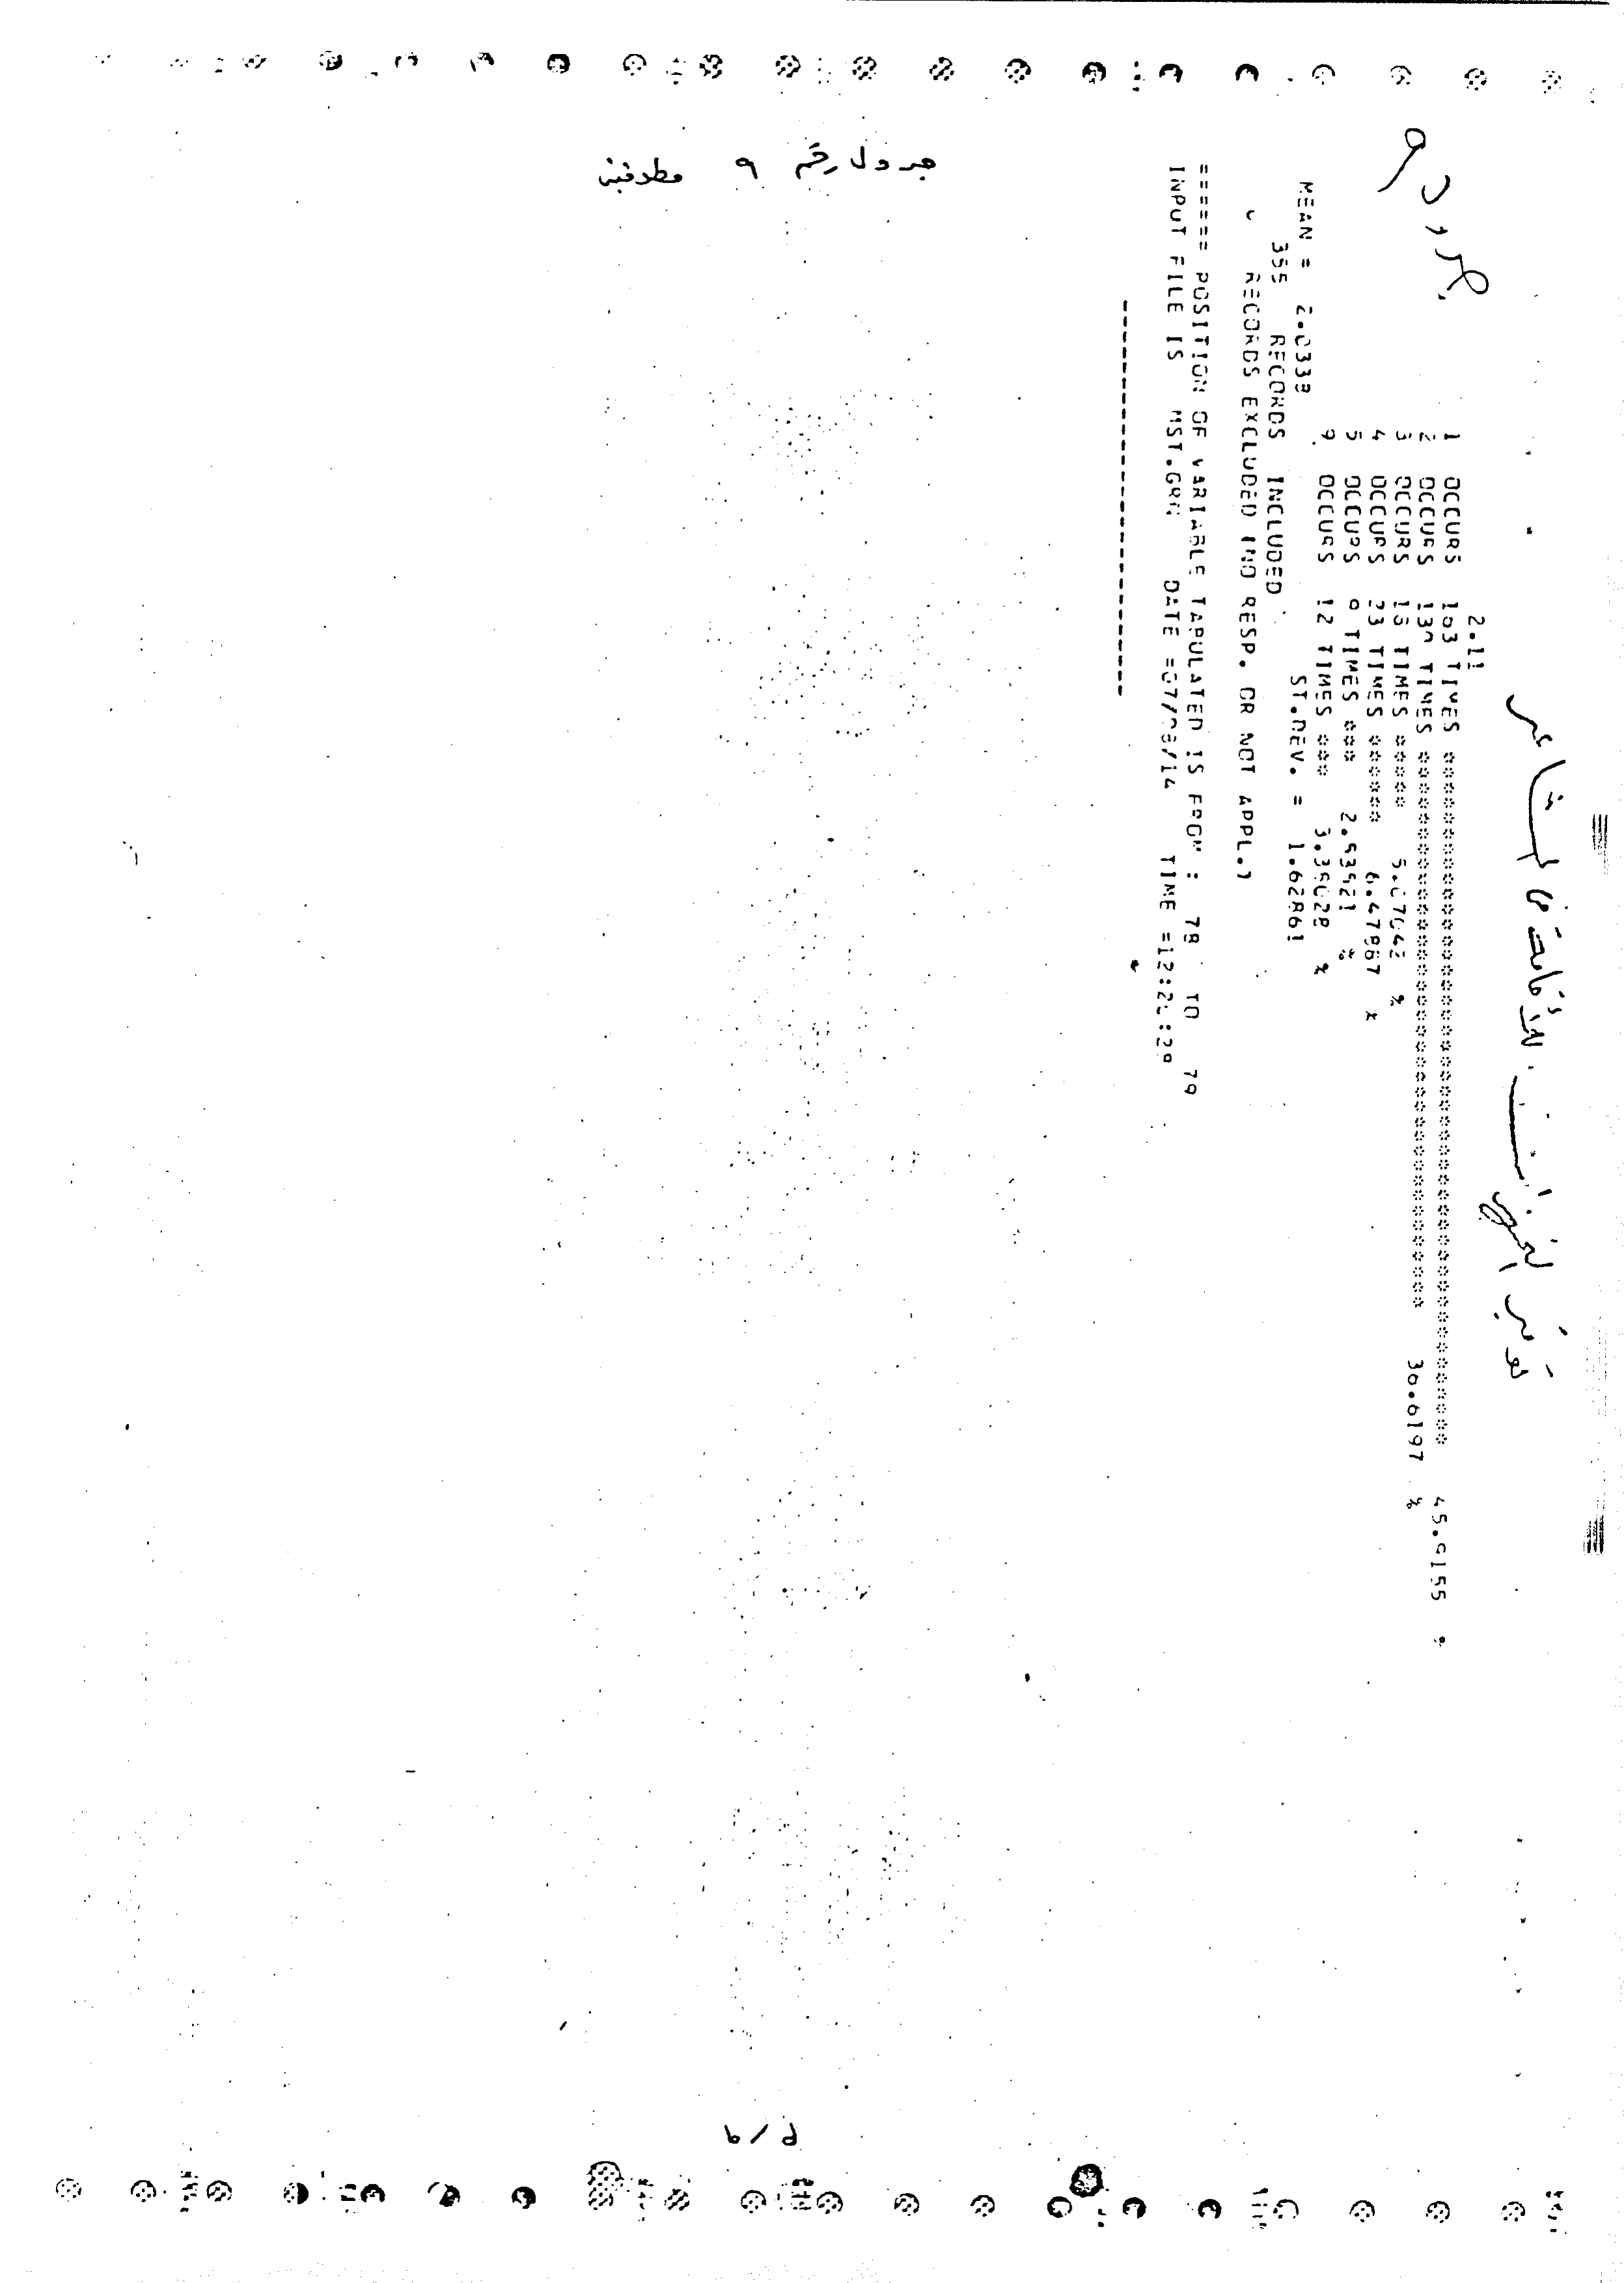 جدول رقم ٩ مطوفين
توفير الخبز للأقامة في المشاعر
2.11
1 OCCURS 163 TIMES ************************************************** 45.9155 %
2 OCCURS 130 TIMES **************************************** 36.6197 %
3 OCCURS 18 TIMES ***** 5.07042 %
4 OCCURS 23 TIMES ****** 6.47887 %
5 OCCURS 9 TIMES *** 2.53521 %
9 OCCURS 12 TIMES *** 3.38028 %
MEAN = 2.0338 ST.DEV. = 1.62861
355 RECORDS INCLUDED
RECORDS EXCLUDED (NO RESP. OR NOT APPL.)
====== POSITION OF VARIABLE TABULATED IS FROM : 78 TO 79
INPUT FILE IS MST.GRN DATE =07/08/14 TIME =12:21:29
--------------------------------
٩/م